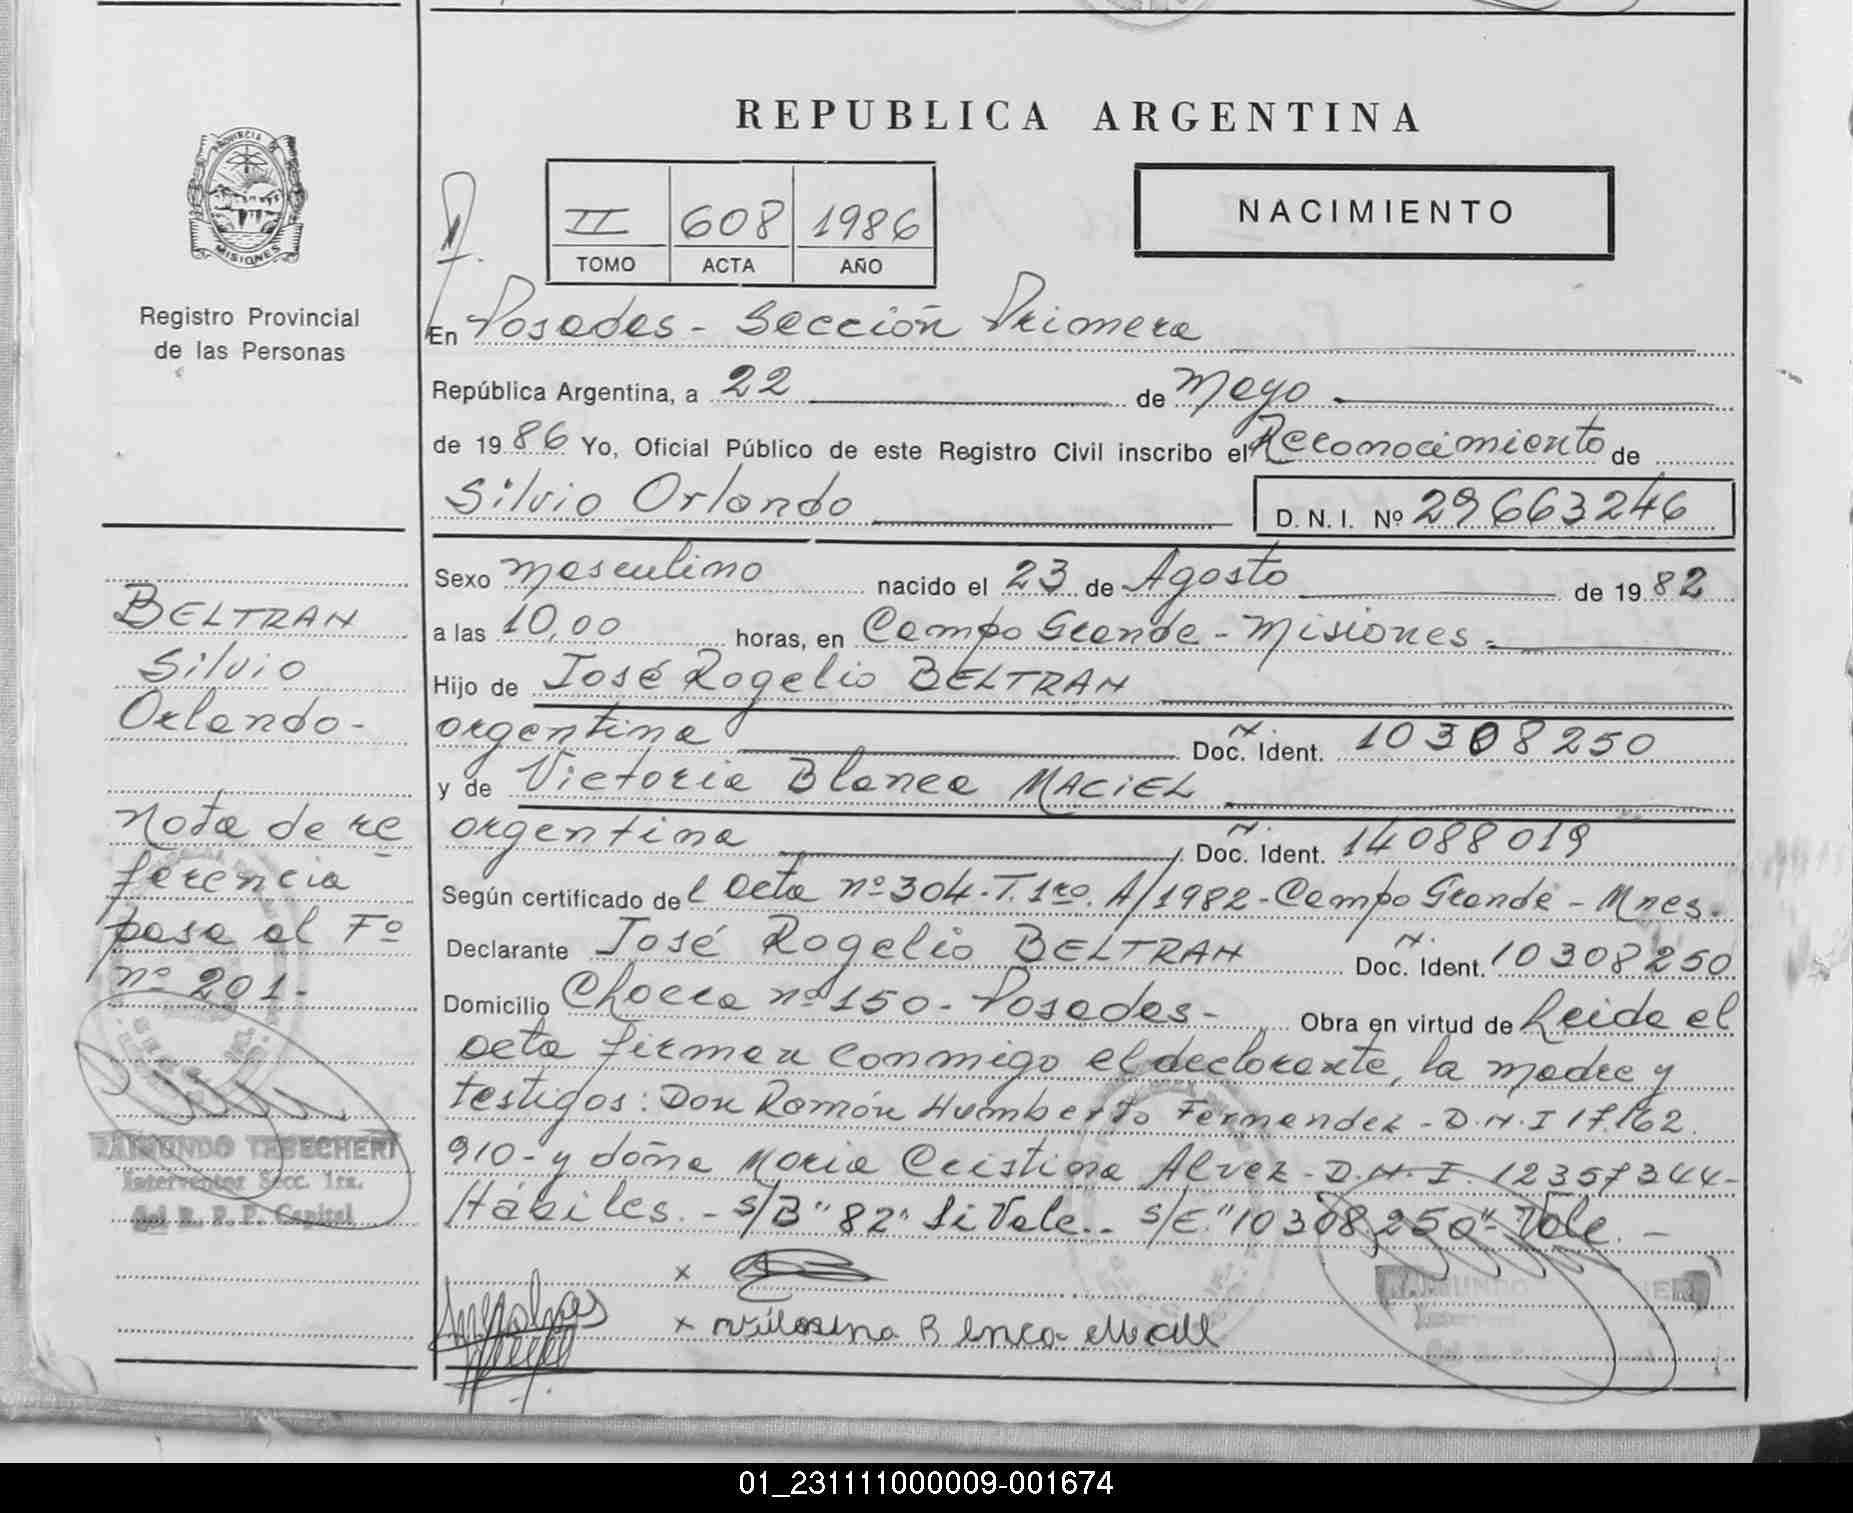 REPUBLICA ARGENTINA
PROVINCIA DE MISIONES
Registro Provincial
de las Personas
II 608 1986
TOMO ACTA AÑO
NACIMIENTO
En Posadas - Sección Primera
República Argentina, a 22 de Mayo
de 1986 Yo, Oficial Público de este Registro Civil inscribo el Reconocimiento de
Silvio Orlando D. N. I. Nº 29663246
Sexo masculino nacido el 23 de Agosto de 1982
a las 10,00 horas, en Campo Grande - Misiones.
Hijo de José Rogelio BELTRAN
argentina N. Doc. Ident. 10308250
y de Victoria Blanca MACIEL
argentina N. Doc. Ident. 14088019
Según certificado del acta nº 304-T.1ro. A/1982-Campo Grande - Mnes.
Declarante José Rogelio BELTRAN N. Doc. Ident. 10308250
Domicilio nº 150 - Posadas - Obra en virtud de Leida el
acta firman conmigo el declarante, la madre y
testigos: Don Ramón Humberto Fernandez - D.N.I 17.162.
910 - y doña Maria Cristina Alvez - D.N.I. 12357344-
Hábiles. - s/B "82" Si Vale.- s/E "10308250" - Vale. -
x
x B
BELTRAN
Silvio
Orlando-
Nota de re
ferencia
pasa al Fº
nº 201-
RAIMUNDO TESECHERI
Interventor Secc. 1ra.
del R. P. P. Capital
RAIMUNDO
01_231111000009-001674